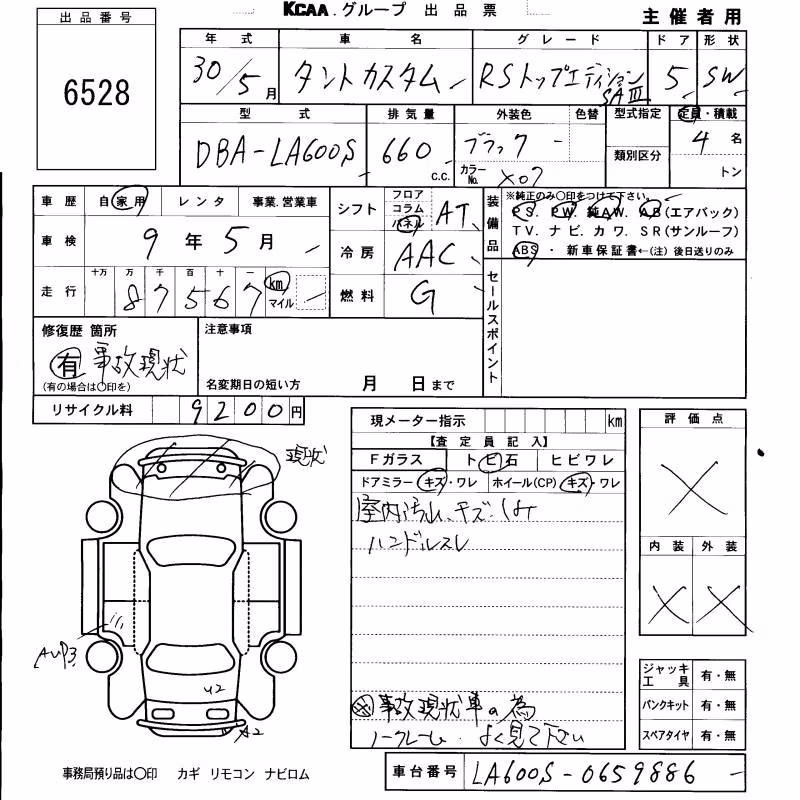 KCAA.グループ 出品票
主催者用
出品番号
6528
年式 車名 グレード ドア 形状
30/5月 タントカスタム RSトップエディション SAIII 5 SW
型式 排気量 外装色 色替 型式指定 定員・積載
DBA-LA600S 660 c.c. ブラック 4名
カラーNo. X07 類別区分 トン
車歴 自家用 レンタ 事業.営業車
シフト フロア コラム パネル AT
装備品 ※純正のみ○印をつけて下さい。
PS. PW. 純AW. AB(エアバック)
TV. ナビ. カワ. SR(サンルーフ)
ABS ・ 新車保証書←(注) 後日送りのみ
車検 9年5月
冷房 AAC
走行 十万 万 千 百 十 一
87567 km マイル
燃料 G
セールスポイント
修復歴 箇所
有 事故現状
(有の場合は○印を)
注意事項
名変期日の短い方 月 日まで
リサイクル料 9200円
現メーター指示 km
【査定員記入】
Fガラス トビ石 ヒビワレ
ドアミラー キズ・ワレ ホイール(CP) キズ・ワレ
室内汚れ、キズ、しみ
ハンドルスレ
評価点
X
内装 外装
X X
現状
AUP3
U2
A2
事故現状車の為
ノークレーム. よく見て下さい
ジャッキ工具 有・無
パンクキット 有・無
スペアタイヤ 有・無
事務局預り品は○印 カギ リモコン ナビロム
車台番号 LA600S-0659886